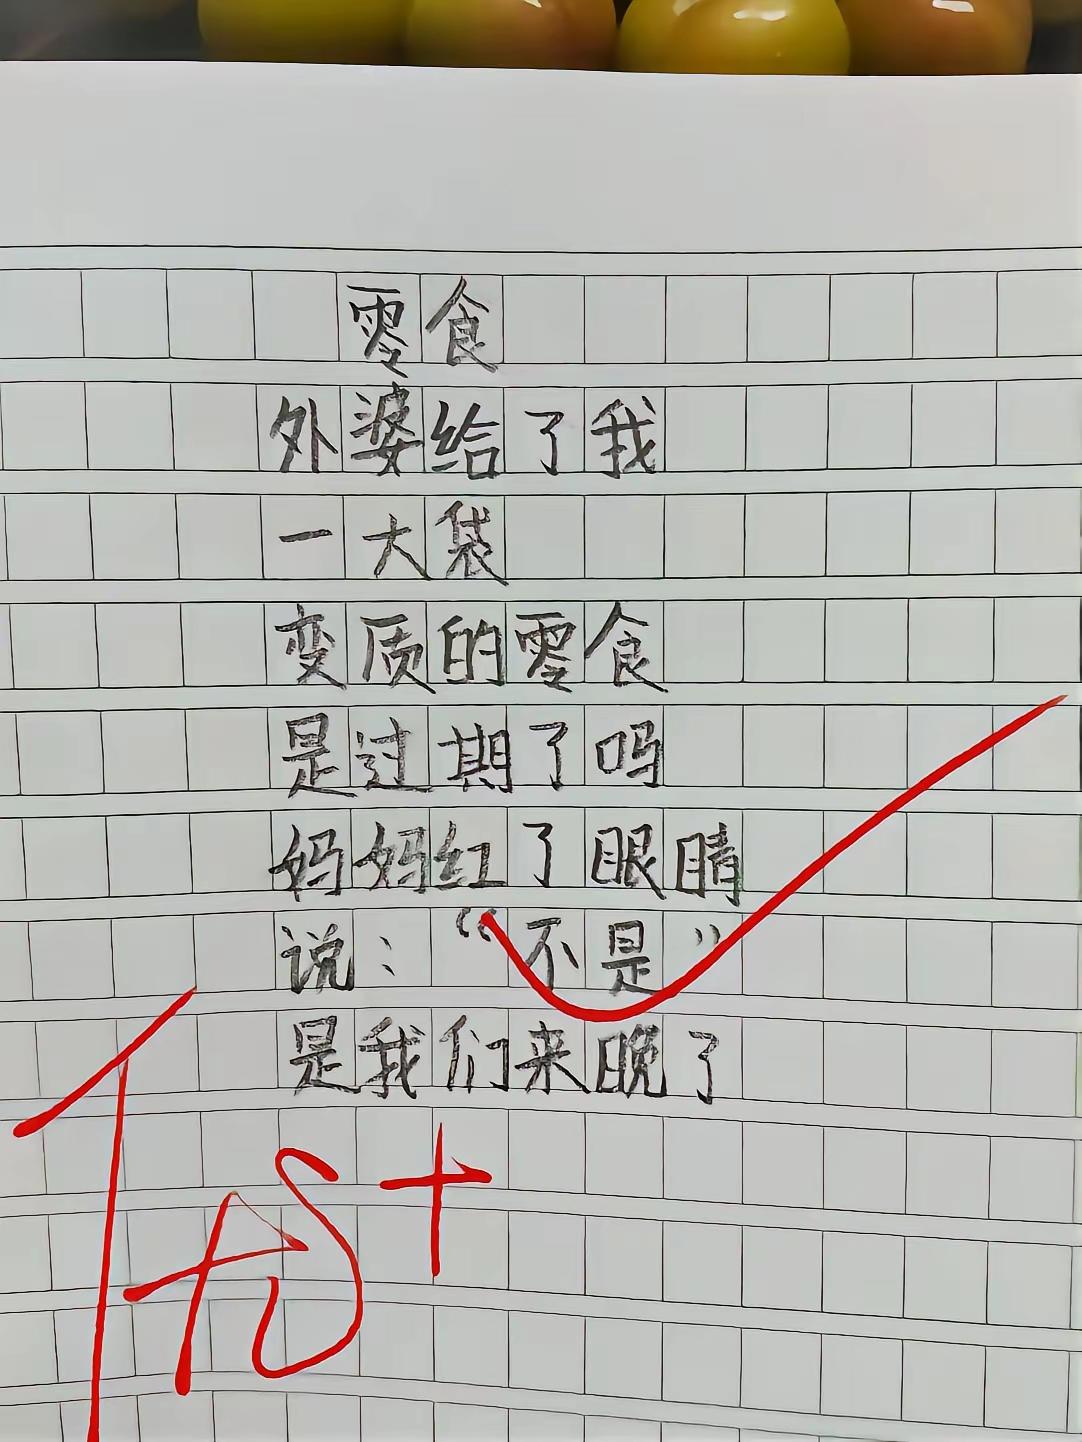 零食
外婆给了我
一大袋
变质的零食
是过期了吗
妈妈红了眼睛
说：“不是”
是我们来晚了